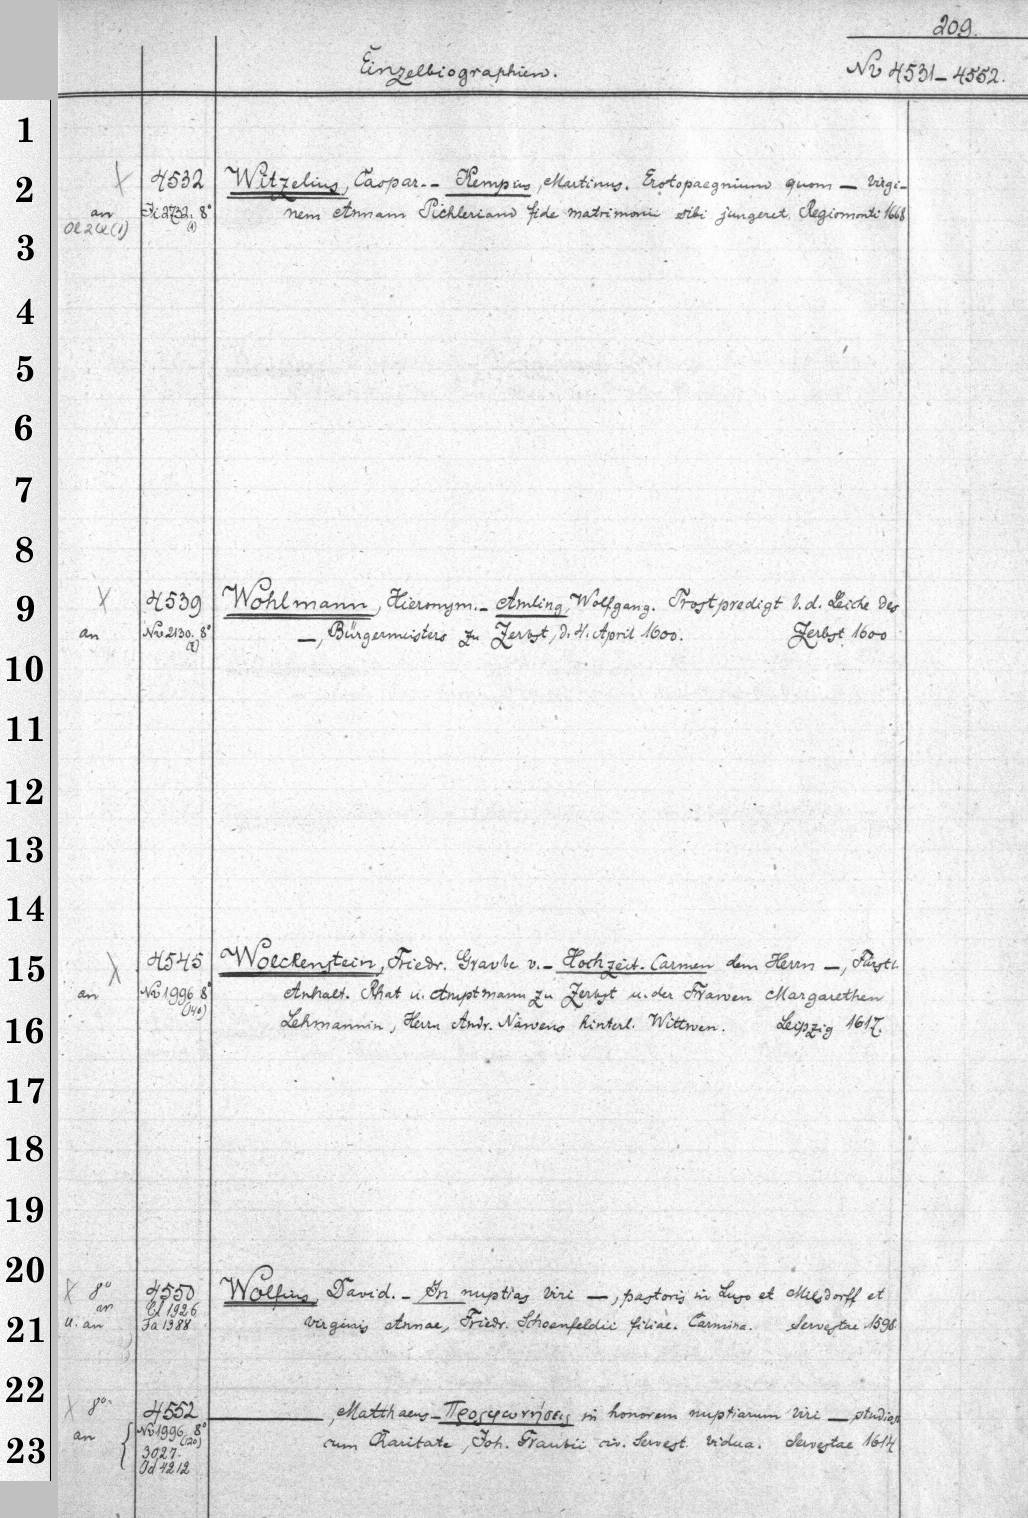 209.
Einzelbiographien.
No 4531-4552.
1
2
3
4
5
6
7
8
9
10
11
12
13
14
15
16
17
18
19
20
21
22
23
X 4532 Witzelius, Caspar. - Kempius, Martinus. Erotopaegnium quom — virgi-
an 2732. 8° nem Annam Pichleriano fide matrimonii sibi jungeret. Regiomonti 1668
(1)
X 4539 Wohlmann, Hieronym. - Amling, Wolfgang. Trostpredigt b. d. Leiche des
an No 2130. 8° —, Bürgermeisters zu Zerbst, d. 4. April 1600. Zerbst 1600
X 4545 Woeckenstein, Friedr. Graube v. - Hochzeit-Carmen dem Herrn —, Fürstl.
an No 1996 8° Anhalt. Rhat u. Amptmann zu Zerbst u. der Frawen Margarethen
Lehmannin, Herrn Andr. Nawens hinterl. Wittwen. Leipzig 1617.
X 8° 4550 Wolfius, David. - In nuptias viri —, pastoris in Luso et Milsdorff et
an 1926
u. an 1388 virginis Annae, Friedr. Schoenfeldii filiae. Carmina. Servestae 1596
X 8° 4552 —, Matthaeus - Προσφωνήσεις in honorem nuptiarum viri —
an No 1996 8° cum Charitate, Joh. Traubii civ. Servest. vidua. Servestae 1614
(20)
3027.
Od 4212